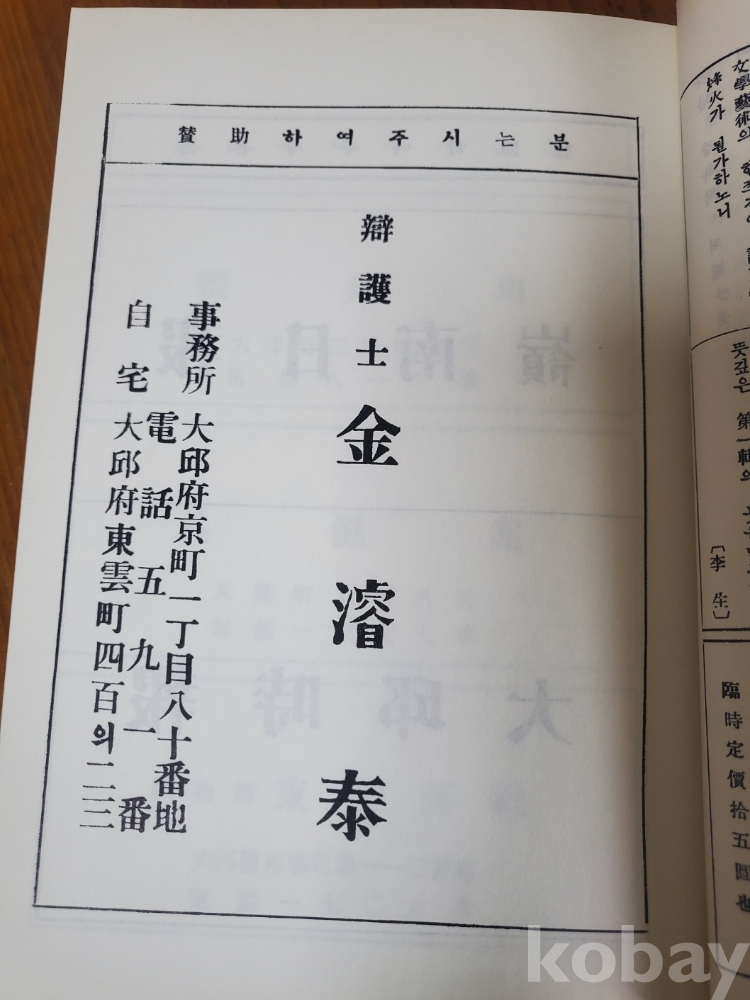 贊助하여주시는분
辯護士 金濬泰
事務所 大邱府京町一丁目八十番地
電話五九一番
自宅 大邱府東雲町四百의二三
文學藝術의
烽火가 된가하노니
뜻깊은 第一輯의
〔李生〕
臨時定價拾五圓也
kobay